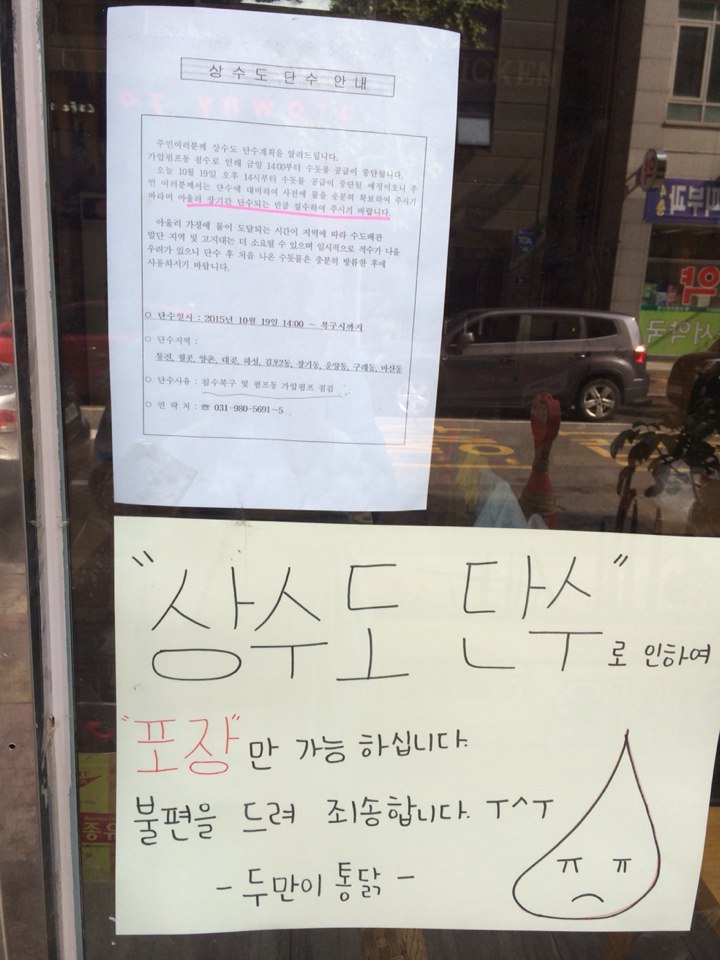 상수도 단수 안내
주민여러분께 상수도 단수계획을 알려드립니다.
가압펌프동 침수로 인해 금일 14:00부터 수돗물 공급이 중단됩니다.
오늘 10월 19일 오후 14시부터 수돗물 공급이 중단될 예정이오니 주
민 여러분께서는 단수에 대비하여 사전에 물을 충분히 확보하여 주시기
바라며 아울러 장기간 단수되는 만큼 절수하여 주시기 바랍니다.
아울러 가정에 물이 도달되는 시간이 지역에 따라 수도배관
말단 지역 및 고지대는 더 소요될 수 있으며 일시적으로 적수가 나올
우려가 있으니 단수 후 처음 나온 수돗물은 충분히 방류한 후에
사용하시기 바랍니다.
○ 단수일시 : 2015년 10월 19일 14:00 ~ 복구시까지
○ 단수지역 :
통진, 월곶, 양촌, 대곶, 하성, 김포2동, 장기동, 운양동, 구래동, 마산동
○ 단수사유 : 침수복구 및 펌프동 가압펌프 점검
○ 연 락 처 : ☎ 031-980-5691~5
"상수도 단수"로 인하여
"포장"만 가능 하십니다.
불편을 드려 죄송합니다. ㅜ^ㅜ
- 두만이 통닭 -
ㅠ ㅠ